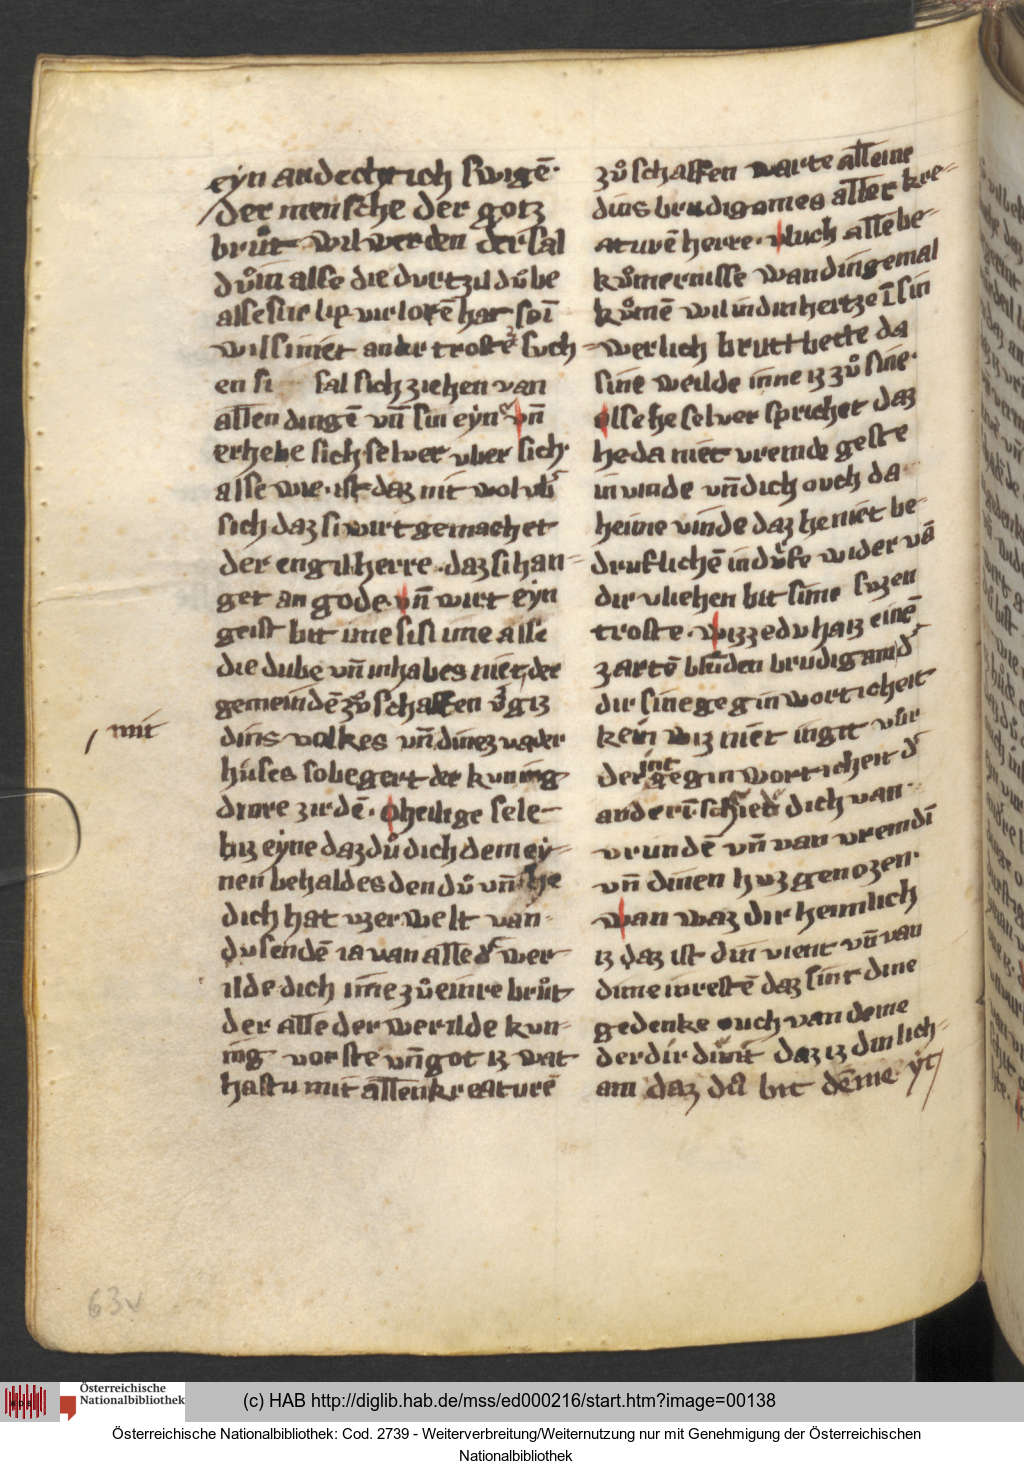 eyn andechtich swigē·
der mensche der gotz
brůt wil werden der sal
důin alse die durtzil dů be
alse sire lip virlorē har soı̄
wil si niet andir troste such
en si sal sich ziehen van
allen dingē vn̄ sin eyn vn̄
erhebe sich selver vber sich·
alse wie· ist daz nit wol vb̄
sich daz si wirt gemachet
der engil herre· daz si han-
get an gode· vn̄ wirt eyn
geist bit ime si si ime alse
die dube vn̄ inhabes niet der
gemeindē zů schaffen v̄giz
mit
dins volkes vn̄ dinez vader
huses so begert der kuning
dinre zirdē· o heilige sele
biz eyne daz dů dich dem ey-
nen behaldes den dů vn̄ he
dich hat vzerwelt van
dusendē ia van alle d' wer
ilde dich imē zů einre brůt
der alle der werilde kun-
nig vorste vn̄ got iz wat
hastu mit allen kreaturē
zů schaffen warte alleine
dins brudigomes aller kre-
aturē herre· vluch alle be-
kůmernisse wan dingemal
kůmē wil in din hertze ī sin
werlich brutbette da
sine weilde inne iz zů sine·
alse he selver sprichet daz
he da niet vremde geste
in vinde vn̄ dich ouch da
heime vinde daz he niet be-
druklichē in důfe wider vā
dir vliehen bit sime suzen
troste· wizze du haiz einē
zartē blůden brudigam d'
dir sine gegin worticheit
kein wiz niet ingit vūr
der int gegin worticheit d'
anderī· schied dich van
vrundē vn̄ van vremdī
vn̄ dinen huzgenozen·
wan waz dir heimlich
iz daz ist din vient vn̄ van
dime inrestē daz sint dine
gedenke ouch van deme
der dir dunit daz iz din lich-
am daz du bit dēme yt
63v
Österreichische
Nationalbibliothek
(c) HAB http://diglib.hab.de/mss/ed000216/start.htm?image=00138
Österreichische Nationalbibliothek: Cod. 2739 - Weiterverbreitung/Weiternutzung nur mit Genehmigung der Österreichischen
Nationalbibliothek